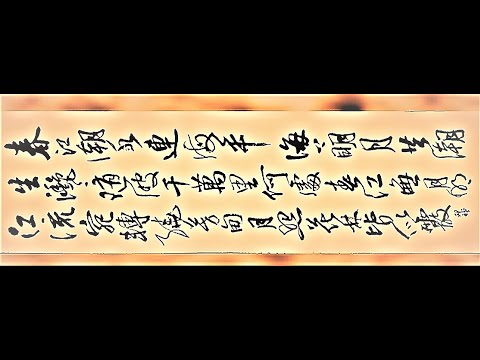 春江潮水連海平海上明月共潮
生灩灩隨波千萬里何處春江無月明
江流宛轉遶芳甸月照花林皆似霰